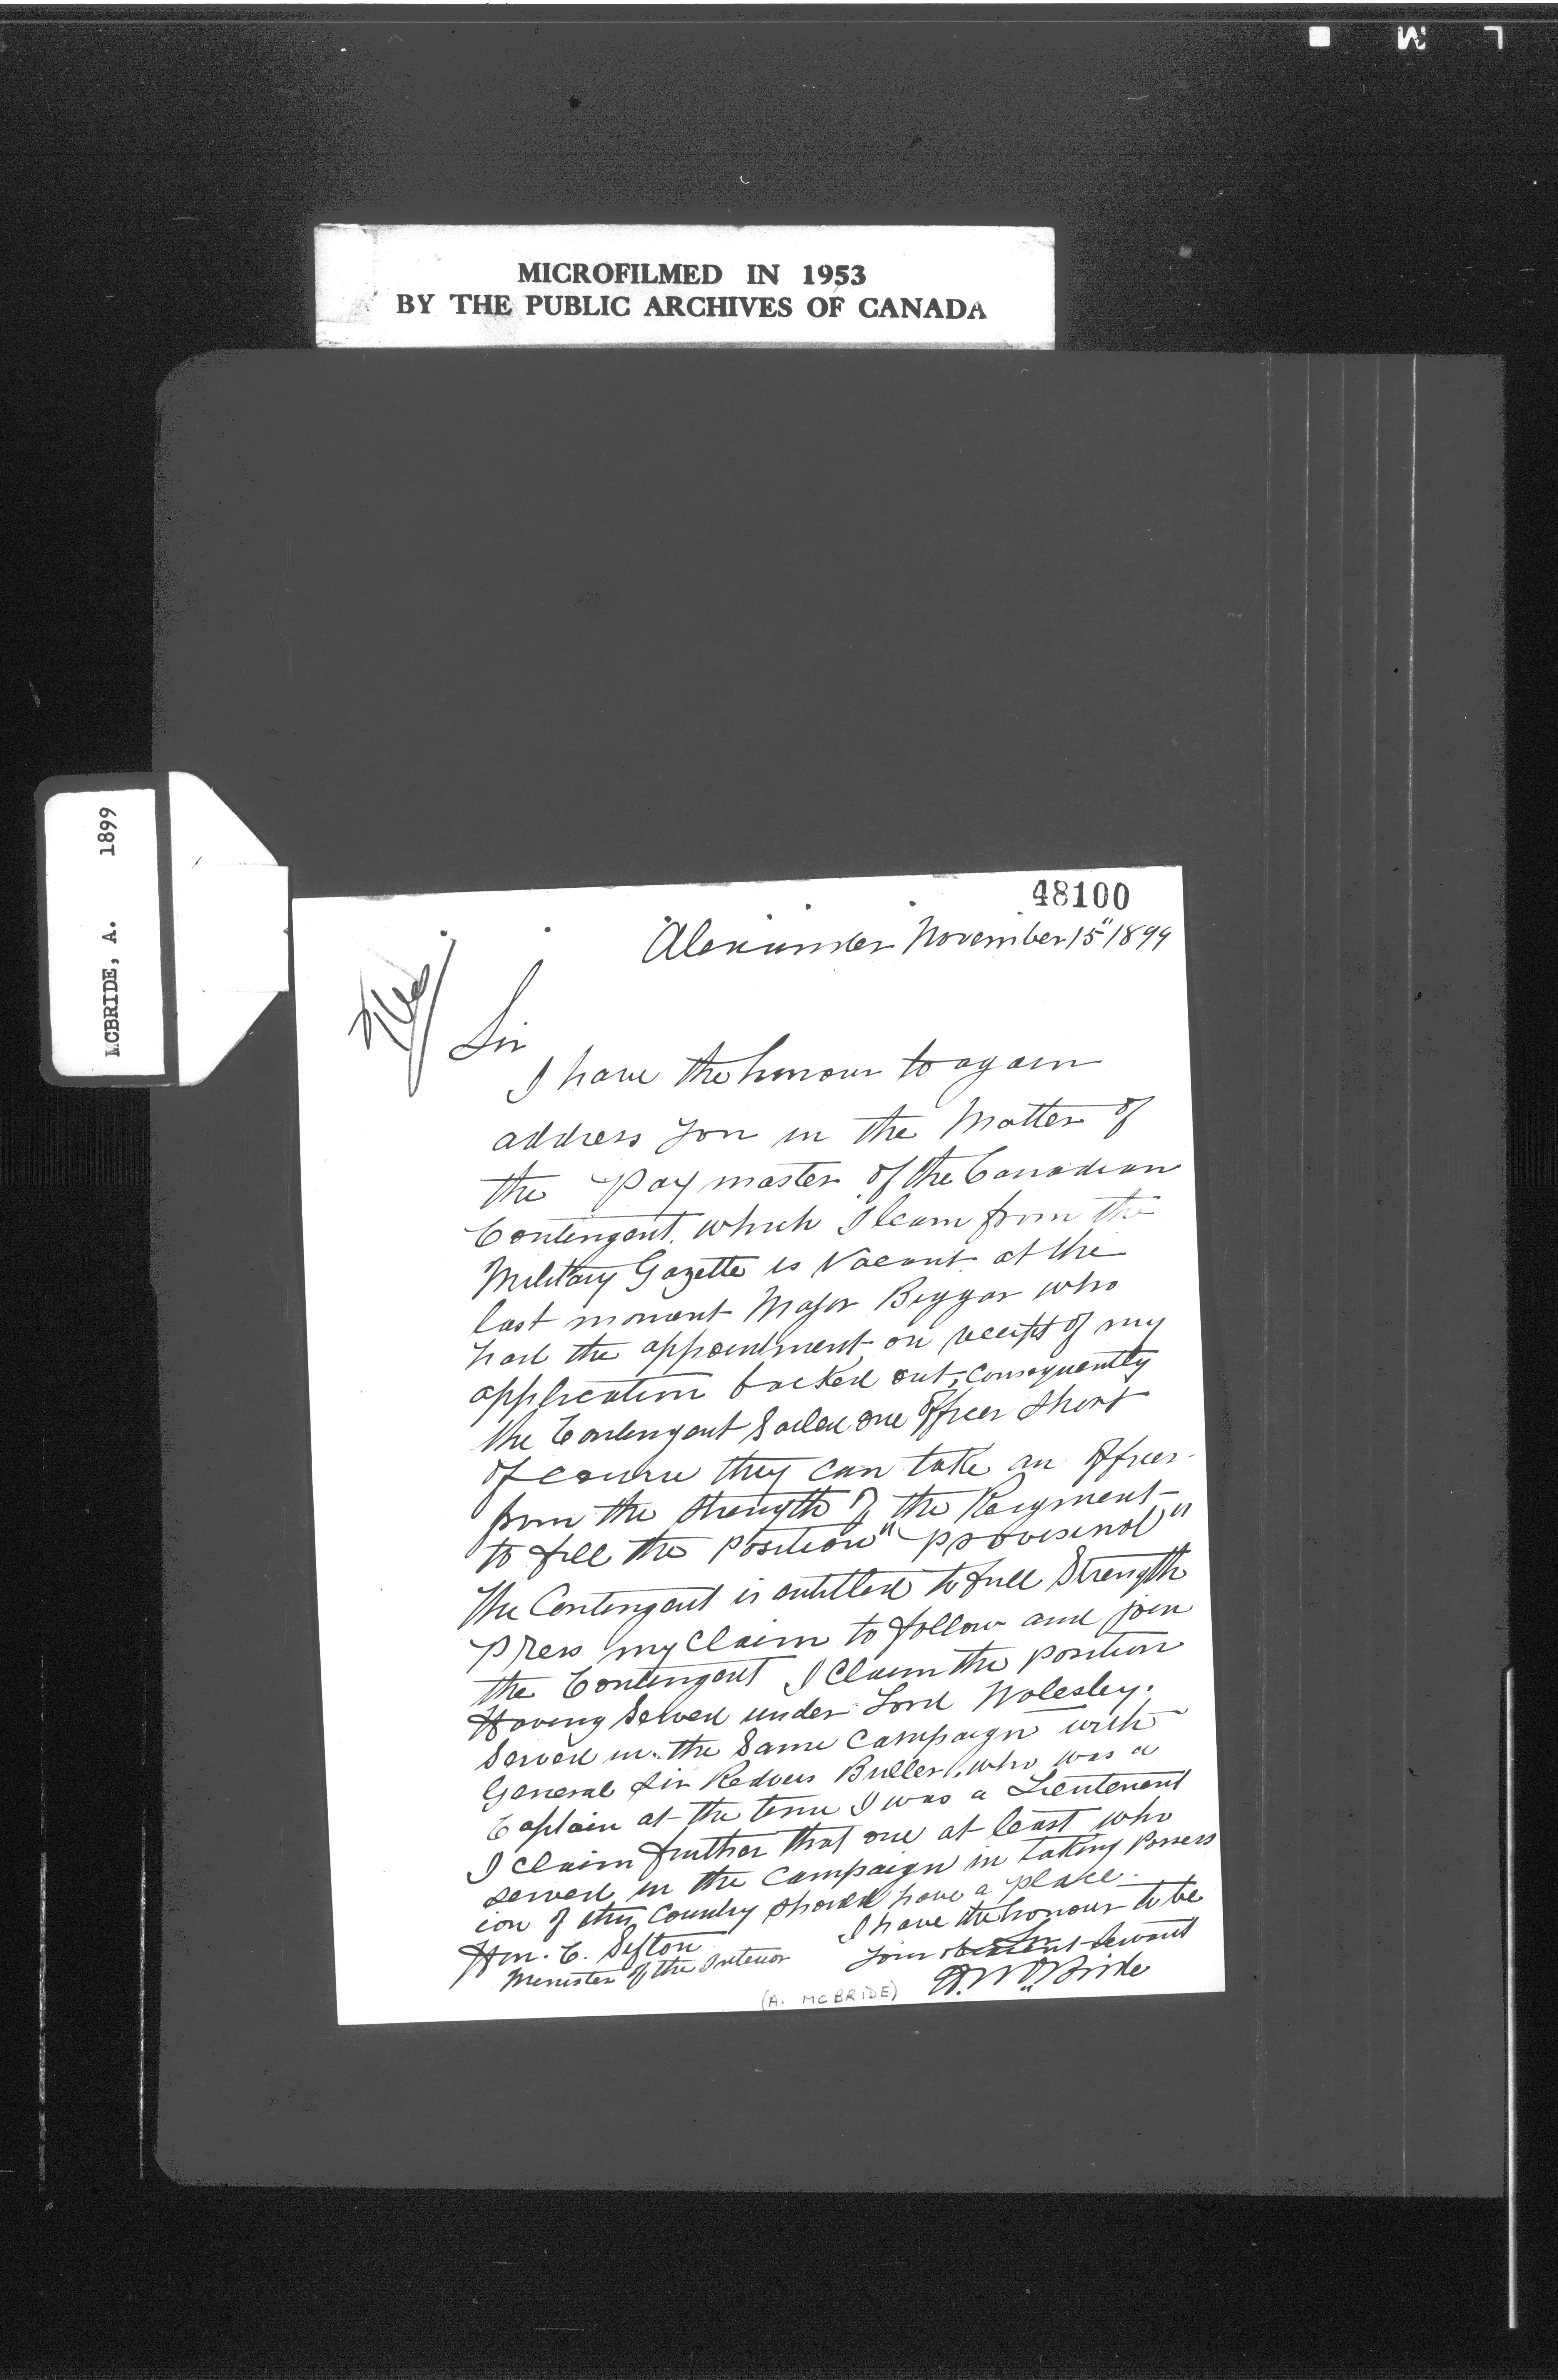 MICROFILMED IN 1953
BY THE PUBLIC ARCHIVES OF CANADA
MCBRIDE, A. 1899
48100
Alexander November 15" 1899
File
Sir
I have the honour to again
address you in the Matter of
the Paymaster of the Canadian
Contingent. which I learn from the
Military Gazette is Vacant at the
last moment Major Biggar who
had the appointment on receipt of my
application backed out, consequently
the Contingent Sailed one Officer Short
of course they can take an officer
from the strength of the Regment
to fill the position "provisinol"
The Contingent is entitled to full Strength
Press my Claim to follow and join
the Contingent I Claim the position
Having Served under Lord Wolesley.
Served in the Same Campaign with
General Sir Redvers Buller, who was a
Captain at the time I was a Lieutenant
I claim further that one at least who
served in the Campaign in taking Possess
ion of this Country should have a place.
I have the honour to be
Sir
Your obedient Servant
A. McBride
Hon. C. Sifton
Minister of the Interior
(A. MCBRIDE)